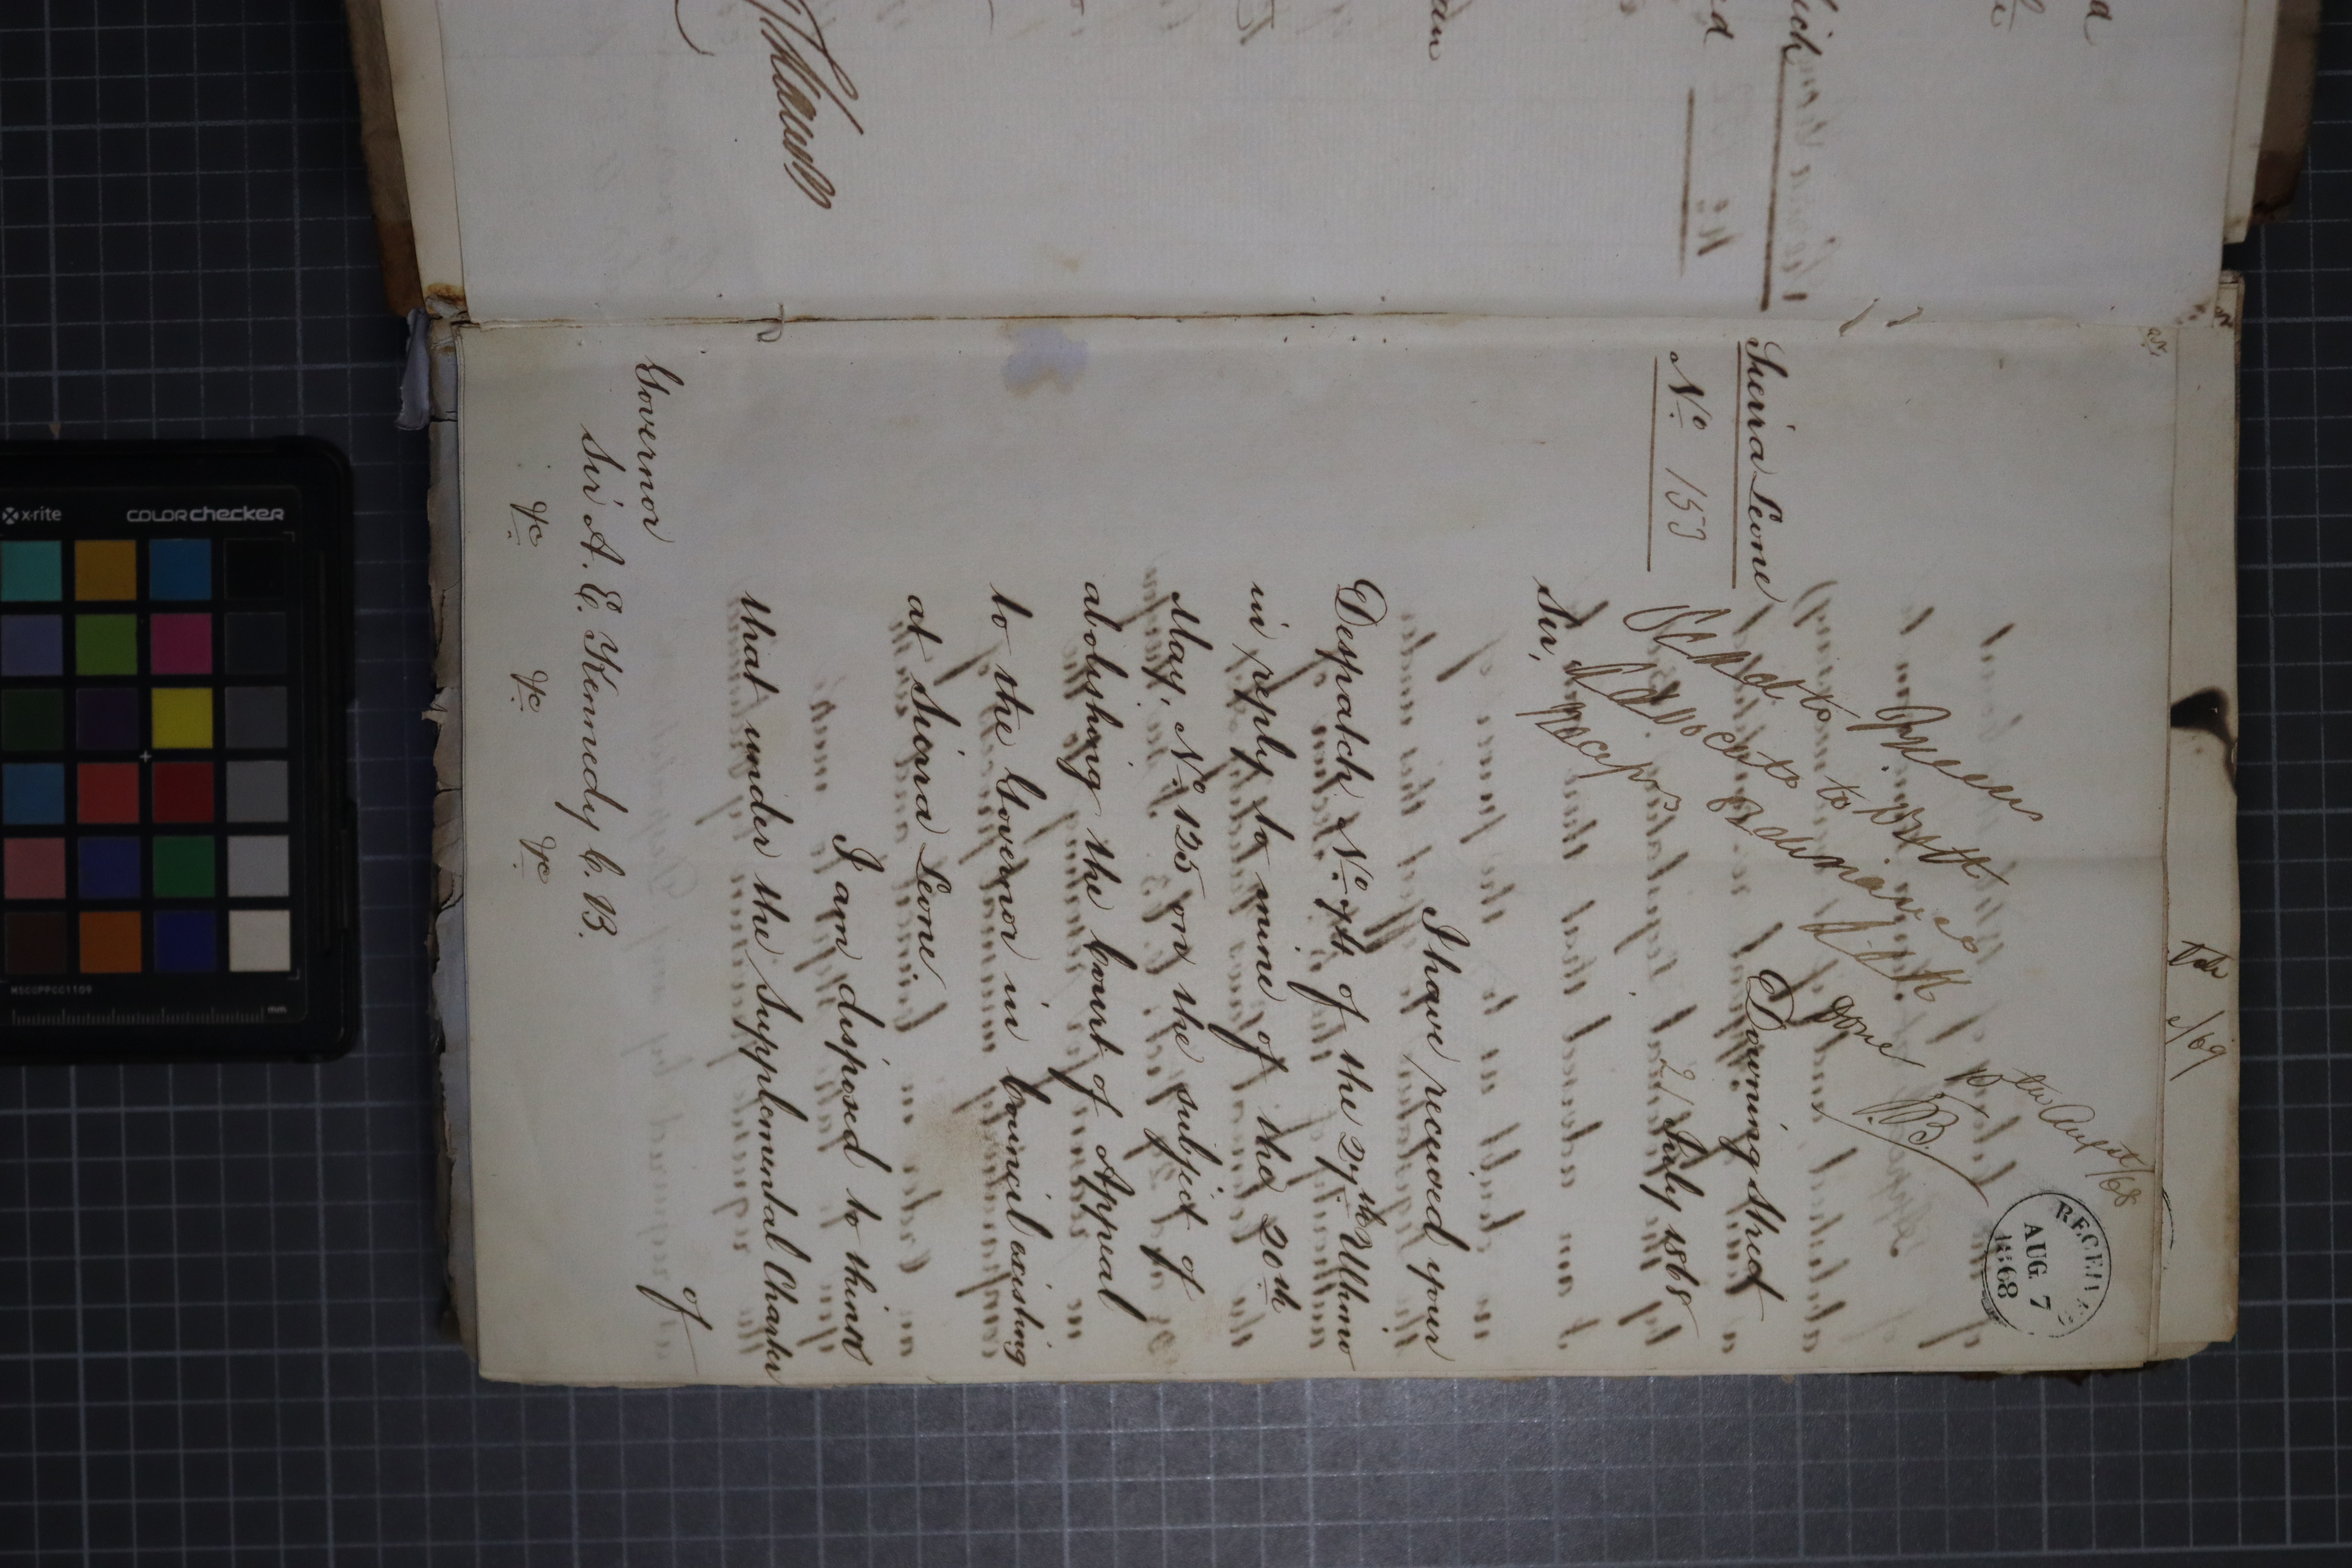 Sierra Leone
No 153
Queen
Advocate to
A.E.K
done
RECEIVED
AUG 7
1868
Downing Street
21 July 1868
Sir,
I have received your
Despatch No 74 of the 27th Ultimo
in reply to mine of the 20th
May, No 125 on the subject of
abolishing the Court of Appeal
to the Governor in Council existing
at Sierra Leone.
I am disposed to think
that under the Supplemental Charter
of
Governor
Sir A. E. Kennedy C. B.
&c &c &c
x-rite colorchecker
MSCCPPCC1109
mm